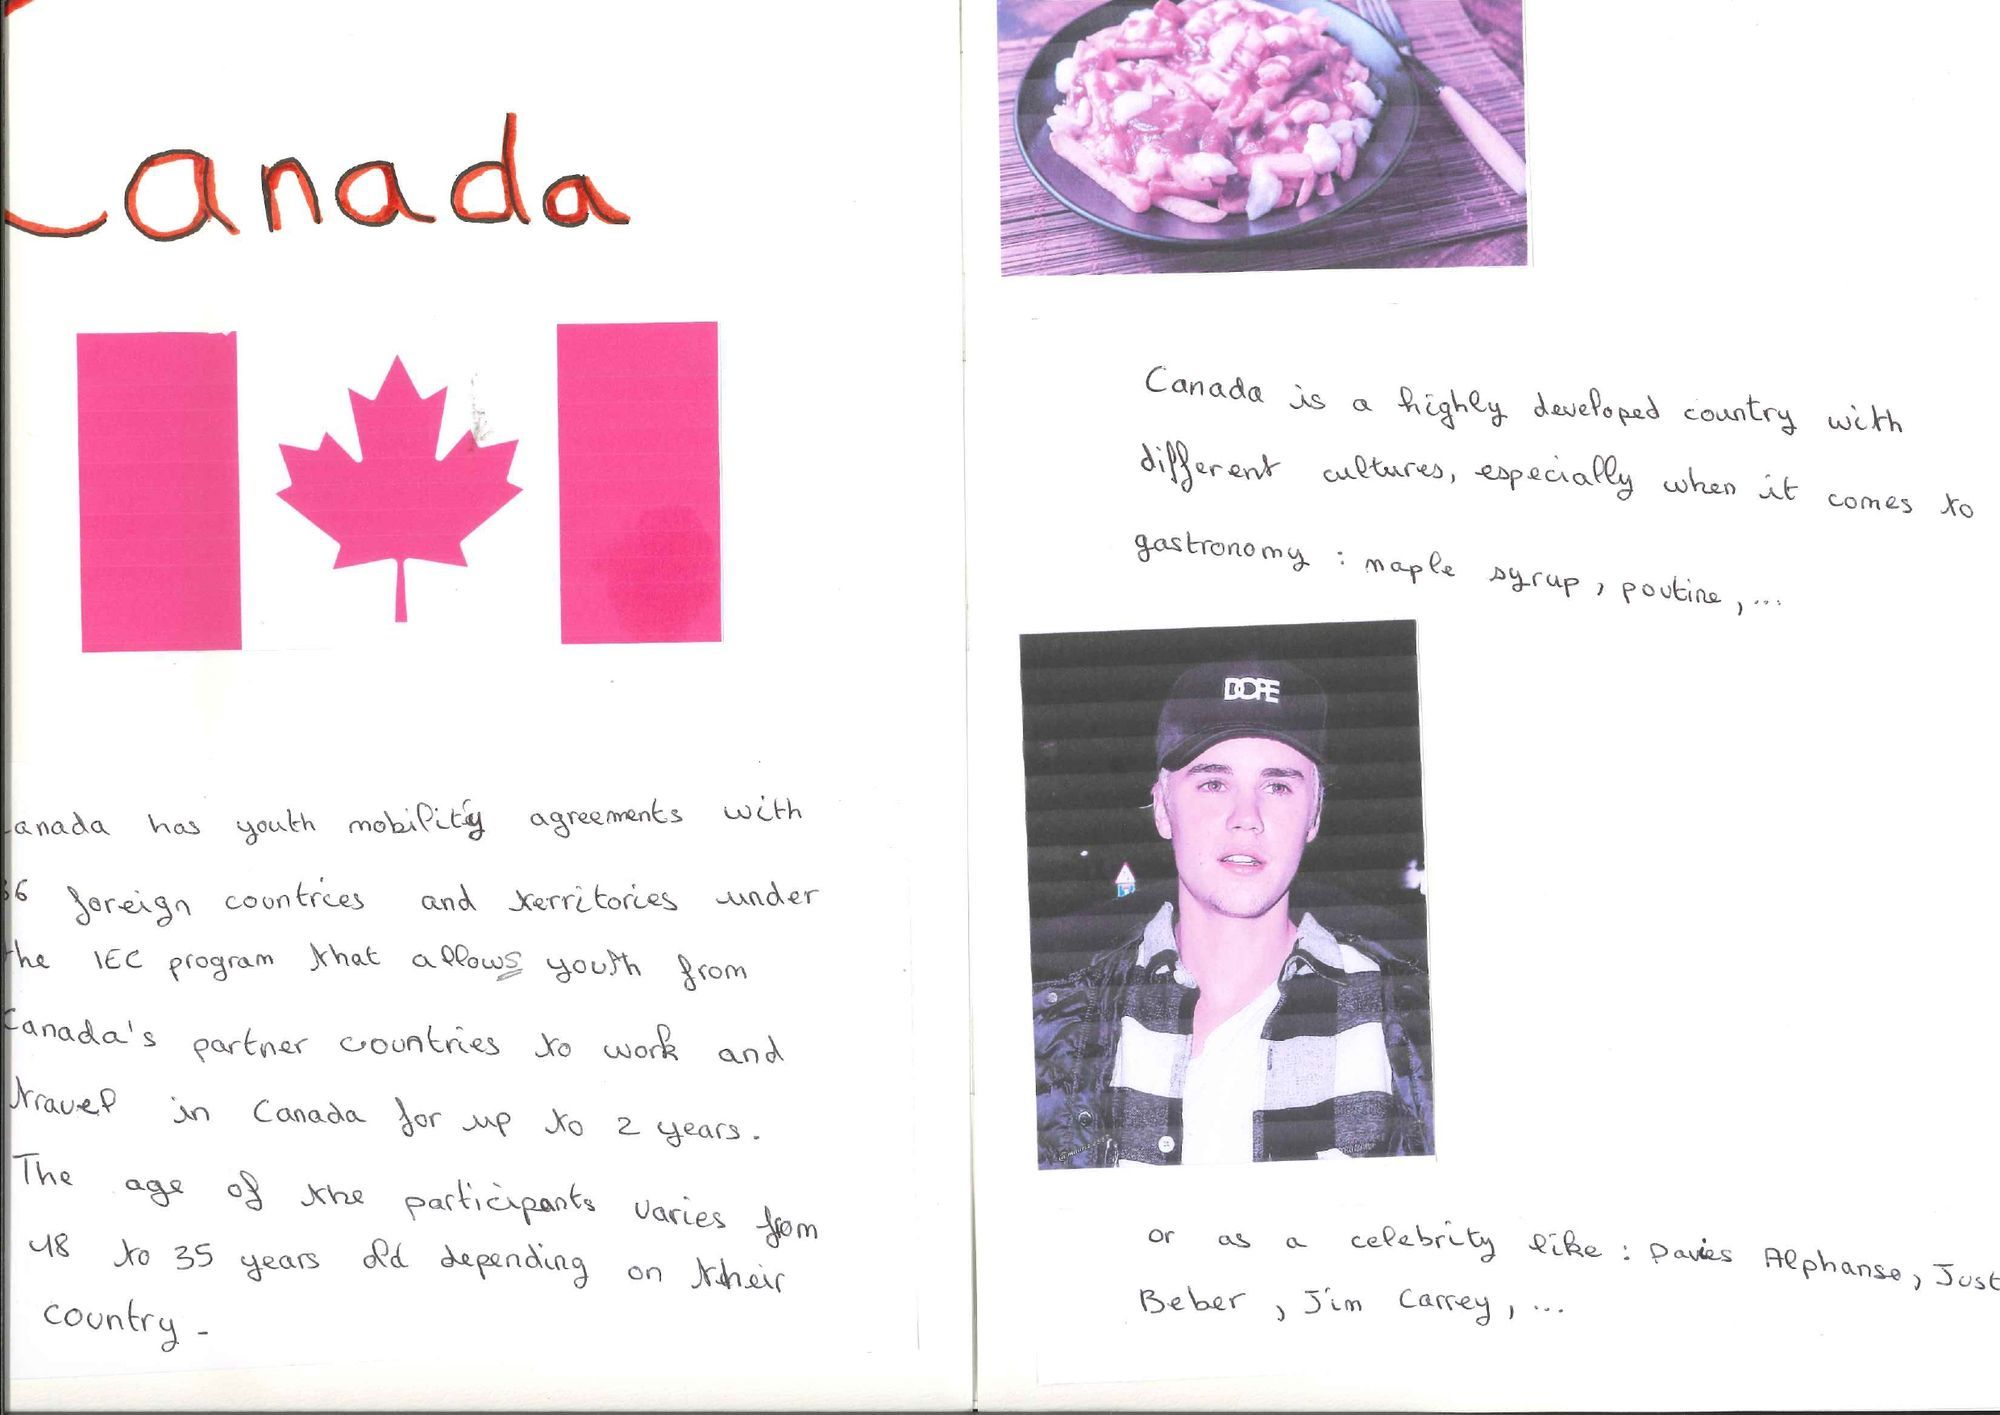 Canada
Canada has youth mobility agreements with
36 foreign countries and territories under
the IEC program that allows youth from
Canada's partner countries to work and
travel in Canada for up to 2 years.
The age of the participants varies from
18 to 35 years old depending on their
country.
Canada is a highly developed country with
different cultures, especially when it comes to
gastronomy : maple syrup, poutine, ...
DOPE
or as a celebrity like : Davies Alphanse, Just
Beber, Jim Carrey, ...